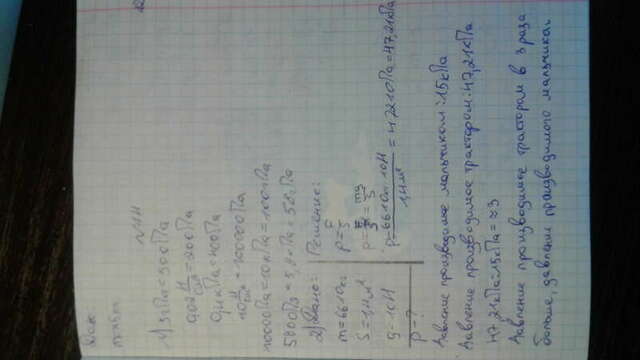 N14
1) 5гПа=500Па
0,02 Н/см² = 200Па
0,4кПа=400Па
10 Н/см² = 100000Па
10000Па=10кПа=100гПа
5800Па=5,8кПа=58гПа
2) Дано: Решение:
m=6610кг p=F/S
S=1,4м² p=F/S=mg/S
g=10Н
p=6610кг·10Н/1,4м²=47210Па=47,21кПа
p-?
Давление производимое мальчиком:15кПа
Давление производимое трактором:47,21кПа
47,21кПа:15кПа=≈3
Давление производимое трактором в 3 раза
больше, давления производимого мальчиком.